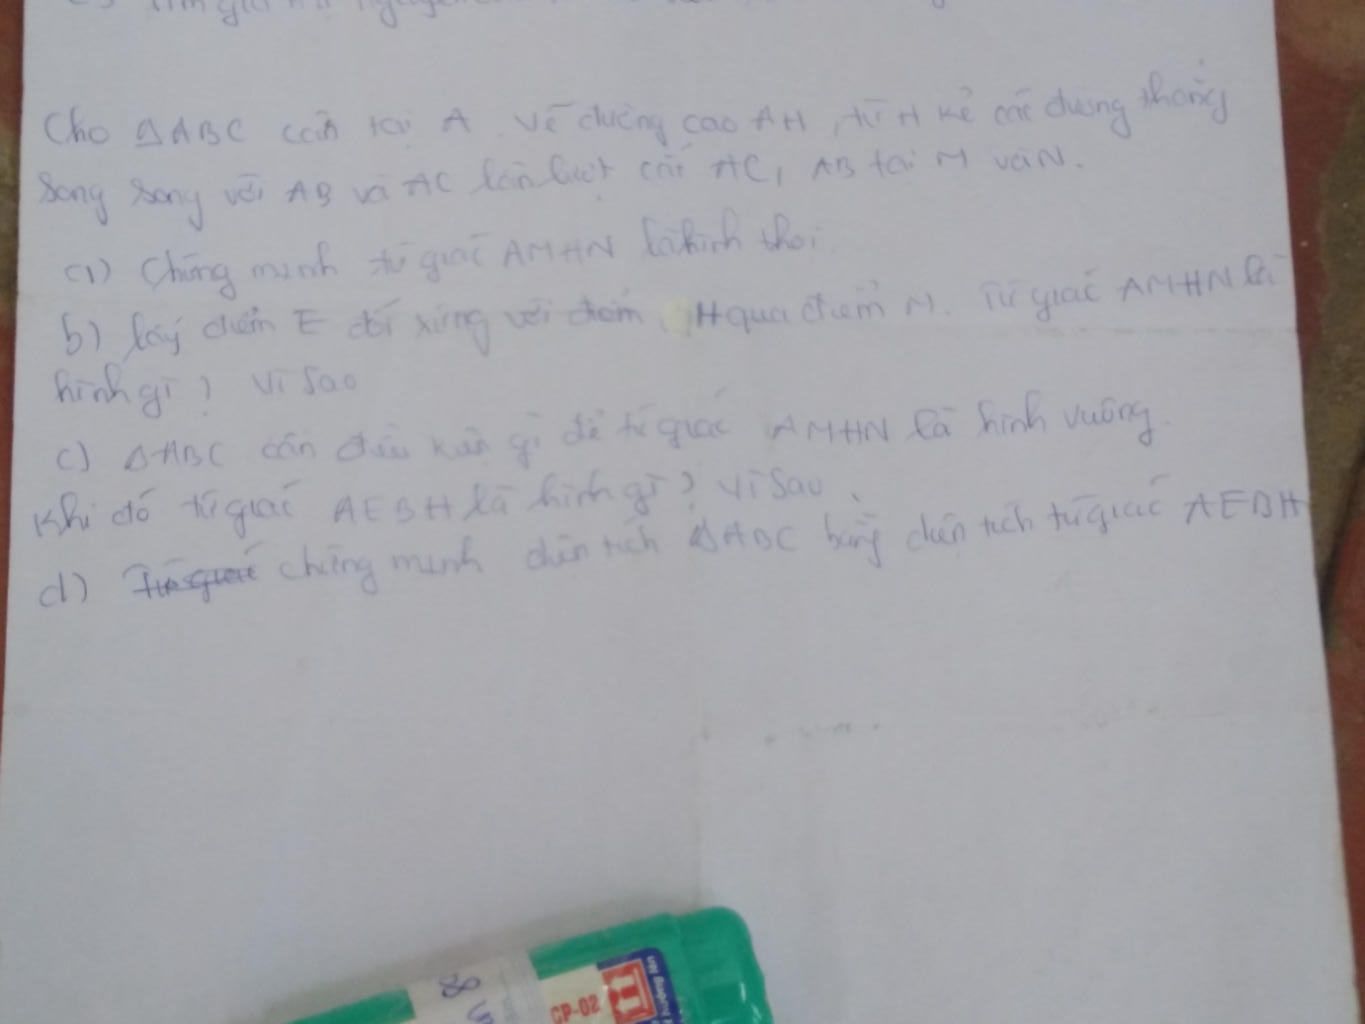 Cho ΔABC cân tại A. Vẽ đường cao AH, từ H kẻ các đường thẳng
song song với AB và AC lần lượt cắt AC, AB tại M và N.
a) Chứng minh tứ giác AMHN là hình thoi.
b) lấy điểm E đối xứng với điểm H qua điểm M. Tứ giác AMHN là
hình gì? Vì sao
c) ΔABC cần điều kiện gì để tứ giác AMHN là hình vuông.
Khi đó tứ giác AEBH là hình gì? Vì sao.
d) chứng minh diện tích ΔABC bằng diện tích tứ giác AEBH
8
CP-02